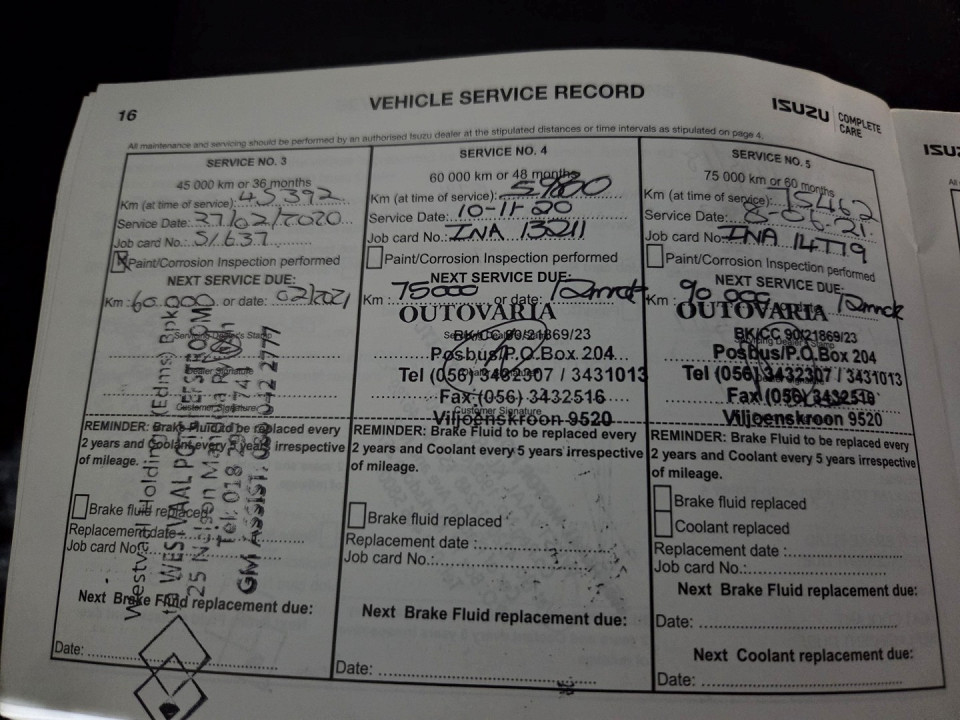 16
VEHICLE SERVICE RECORD
ISUZU COMPLETE CARE
ISUZ
All maintenance and servicing should be performed by an authorised Isuzu dealer at the stipulated distances or time intervals as stipulated on page 4.
SERVICE NO. 3
45 000 km or 36 months
Km (at time of service): 43392
Service Date: 27/02/2020
Job card No.: 51637
Paint/Corrosion Inspection performed
NEXT SERVICE DUE:
Km : 60 000 or date: 02/2021
Servicing Dealer's Stamp
Dealer Signature
Customer Signature
REMINDER: Brake Fluid to be replaced every
2 years and Coolant every 5 years irrespective
of mileage.
Brake fluid replaced
Replacement date :
Job card No.:
Next Brake Fluid replacement due:
Date:
Westvaal Holdings (Edms) Bpk
WESTVAAL POTCHEFSTROOM
25 Nelson Mandela
Tel: 018
GM ASSIST: 2777
SERVICE NO. 4
60 000 km or 48 months
Km (at time of service):
Service Date: 10-11-20
Job card No.: INA 13211
Paint/Corrosion Inspection performed
NEXT SERVICE DUE:
Km : 75000 or date:
OUTOVARIA
BK/CC 90/21869/23
Posbus/P.O.Box 204
Tel (056) 3432307 / 3431013
Fax (056) 3432516
Customer Signature
Viljoenskroon 9520
REMINDER: Brake Fluid to be replaced every
2 years and Coolant every 5 years irrespective
of mileage.
Brake fluid replaced
Replacement date :
Job card No.:
Next Brake Fluid replacement due:
Date:
SERVICE NO. 5
75 000 km or 60 months
Km (at time of service): 75462
Service Date:
Job card No.: INA 14779
Paint/Corrosion Inspection performed
NEXT SERVICE DUE:
Km : 90 000
OUTOVARIA
BK/CC 90/21869/23
Posbus/P.O.Box 204
Tel (056) 3432307 / 3431013
Fax (056) 3432516
Viljoenskroon 9520
REMINDER: Brake Fluid to be replaced every
2 years and Coolant every 5 years irrespective
of mileage.
Brake fluid replaced
Coolant replaced
Replacement date :
Job card No.:
Next Brake Fluid replacement due:
Date:
Next Coolant replacement due:
Date: